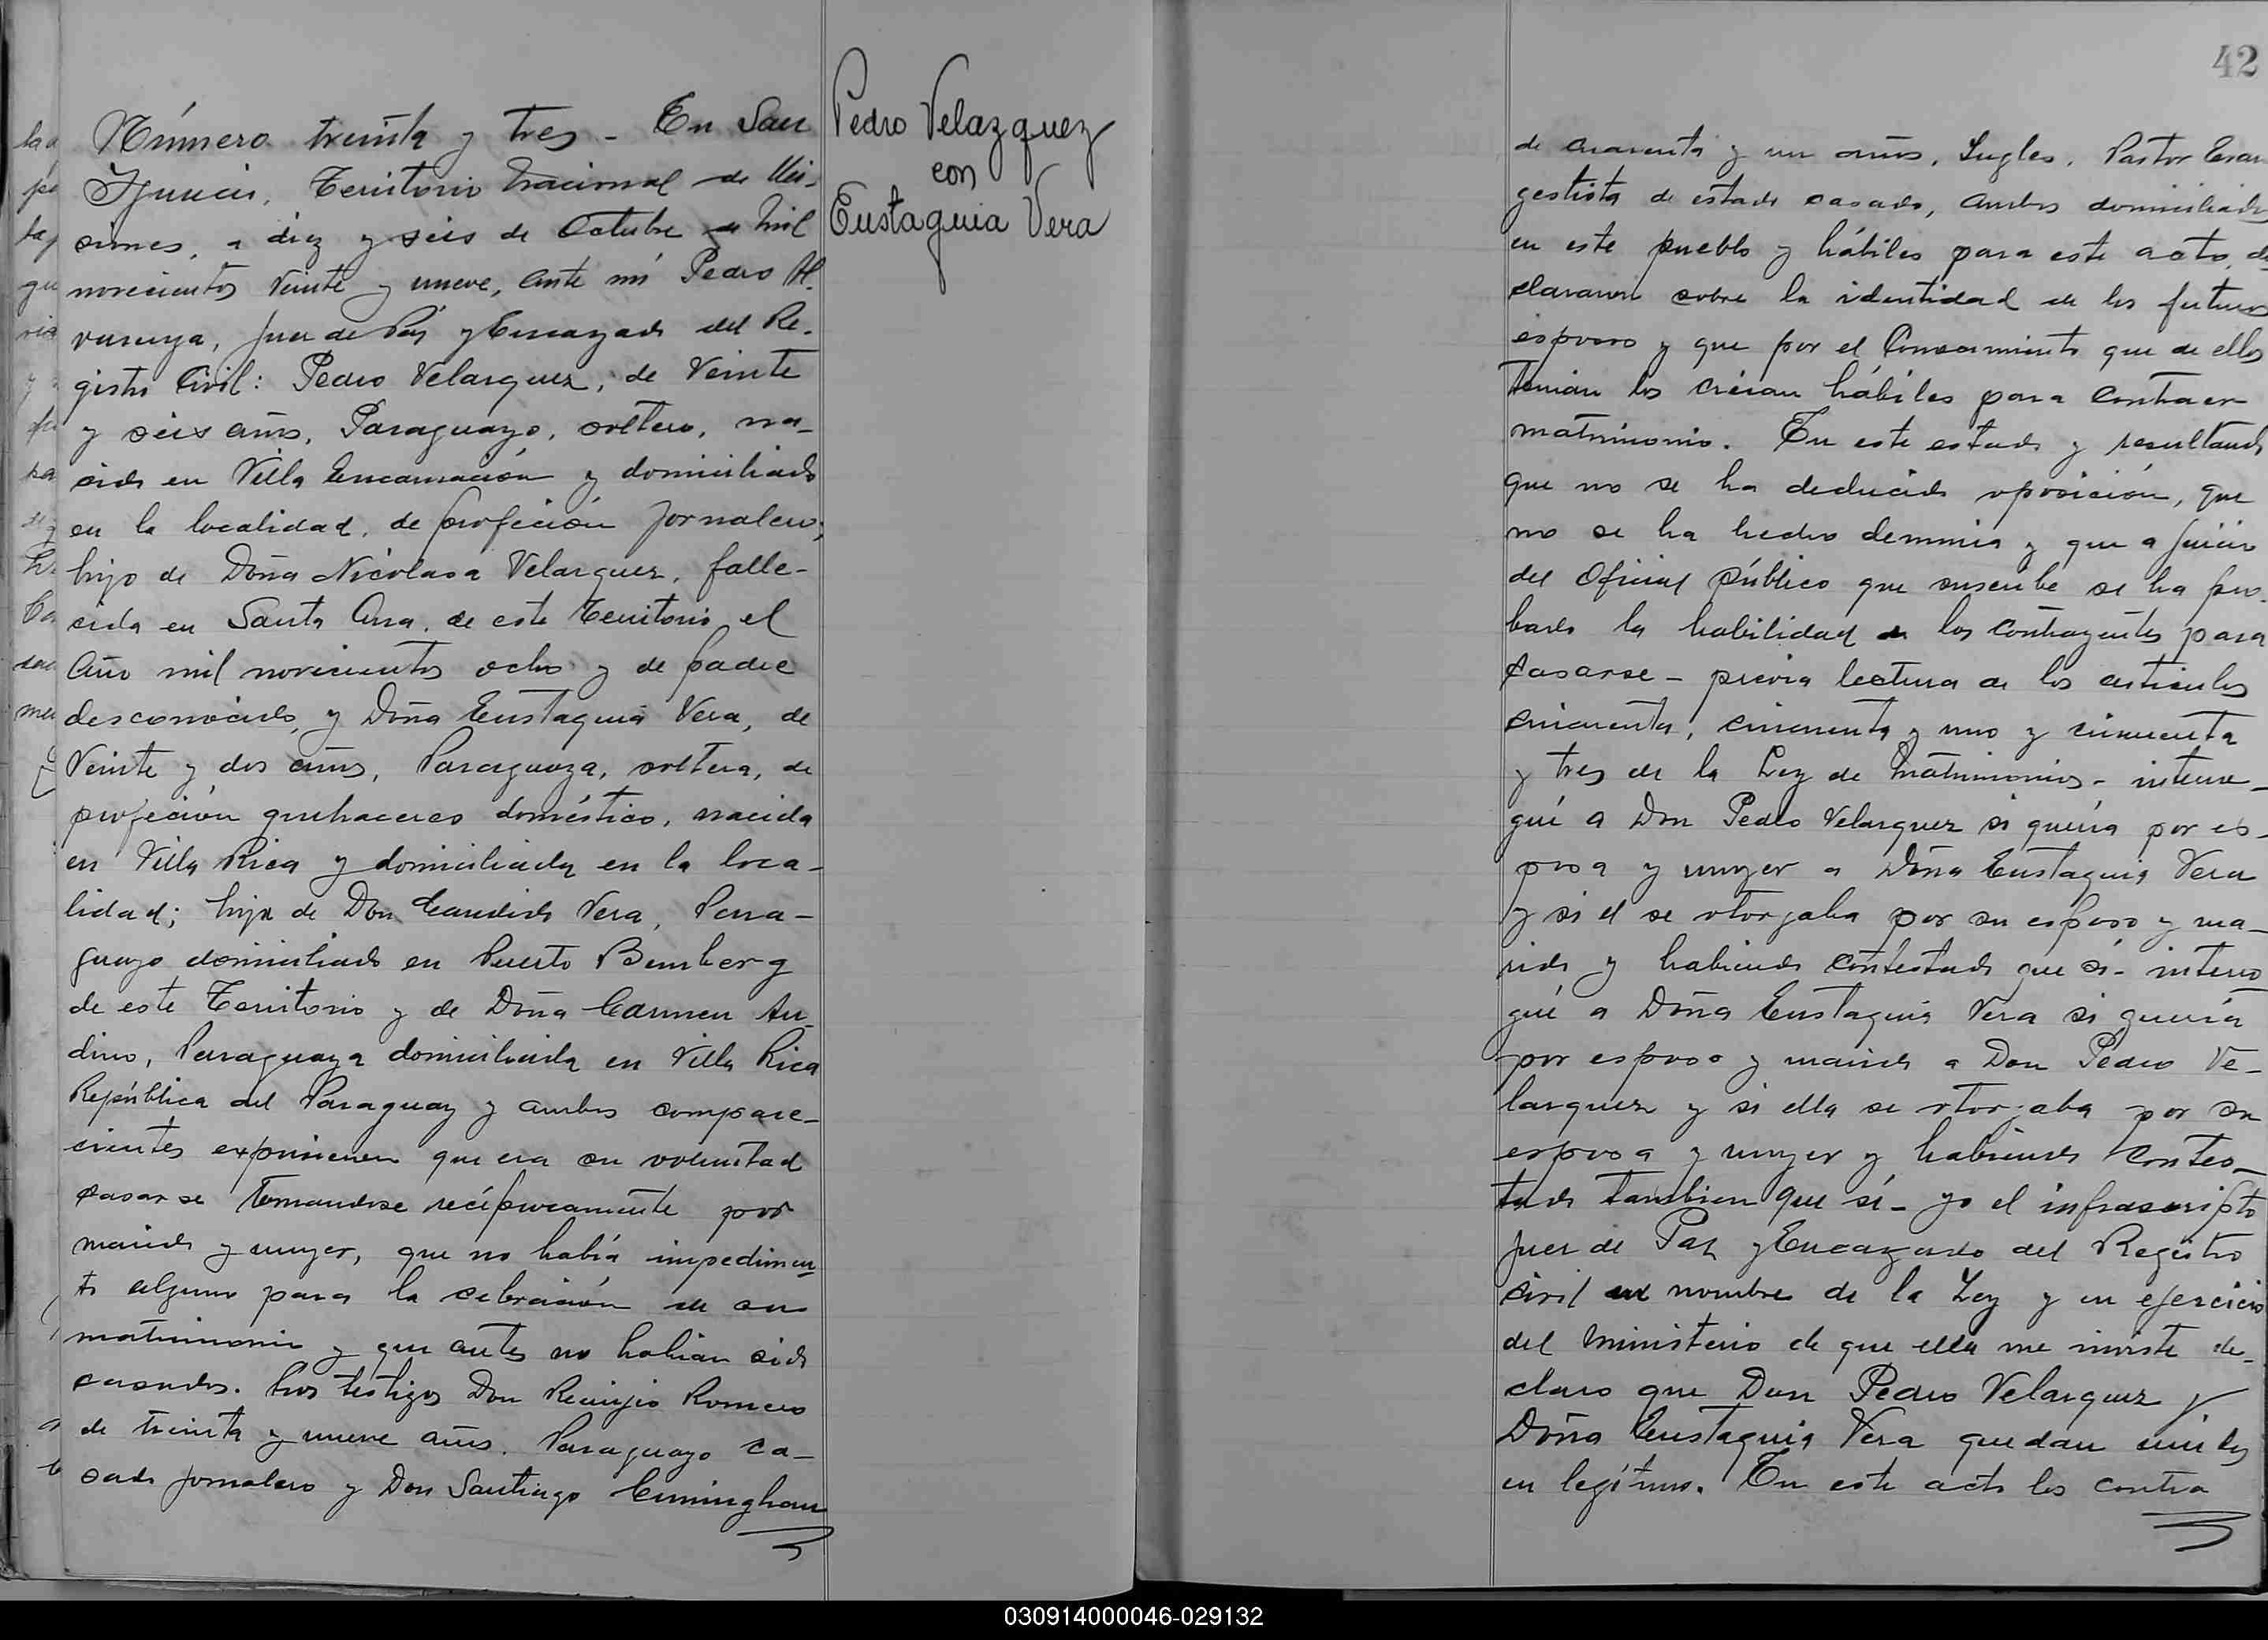 Número treinta y tres - En San
Ignacio, Territorio Nacional de Mi-
siones, a diez y seis de Octubre de mil
novecientos veinte y nueve, ante mí Pedro
Juez de Paz y Encargado del Re-
gistro Civil: Pedro Velazquez, de Veinte
y seis años, Paraguayo, soltero, na-
cido en Villa Encarnación y domiciliado
en la localidad, de profeción Jornalero;
hijo de Doña Nicolasa Velazquez, falle-
cida en Santa Ana, de este Territorio el
año mil novecientos ocho y de padre
desconocido, y Doña Eustaquia Vera, de
Veinte y dos años, Paraguaya, soltera, de
profeción quehaceres doméstico, nacida
en Villa Rica y domiciliada en la loca-
lidad; hija de Don Candido Vera, Para-
guayo domiciliado en Puerto Bemberg
de este Territorio y de Doña Carmen
Paraguaya domiciliada en Villa Rica
República del Paraguay y ambos compare-
cientes expusieron que era su voluntad
casarse tomandose recíprocamente por
marido y mujer, que no había impedimen-
to alguno para la celbración de su
matrimonio y que antes no habían sido
casados. Los testigos Don Remijio Romero
de treinta y nueve años. Paraguayo ca-
sado jornalero y Don Santiago Cuningham
Pedro Velazquez
con
Eustaquia Vera
42
de cuarenta y un años, Ingles, Pastor Evan
gestista de estado casado, ambos domiciliados
en este pueblo y hábiles para este acto, de
clararon sobre la identidad de los futuros
esposos y que por el Conocimiento que de ellos
tenían los creían hábiles para contraer
matrimonio. En este estado y resultando
que no se ha deducido oposición, que
no se ha hecho denuncia y que a juicio
del Oficial público que suscribe se ha pro-
bado la habilidad de los contrayentes para
casarse - previa lectura de los articulos
cincuenta, cincuenta y uno y cincuenta
y tres de la Ley de Matrimonios - interro-
gué a Don Pedro Velazquez si quería por es-
posa y mujer a Doña Eustaquia Vera
y si el se otorgaba por su esposo y ma-
rido y habiendo contestado que sí - interro
gué a Doña Eustaquia Vera si quería
por esposo y marido a Don Pedro Ve-
lazquez y si ella se otorgaba por su
esposa y mujer y habiendo contes-
tado tambien que sí - yo el infrascripto
Juez de Paz y Encargado del Registro
Civil en nombre de la Ley y en ejercicio
del ministerio de que ella me inviste de-
claro que Don Pedro Velazquez y
Doña Eustaquia Vera quedan unidos
en legítimo. En este acto los contra
030914000046-029132